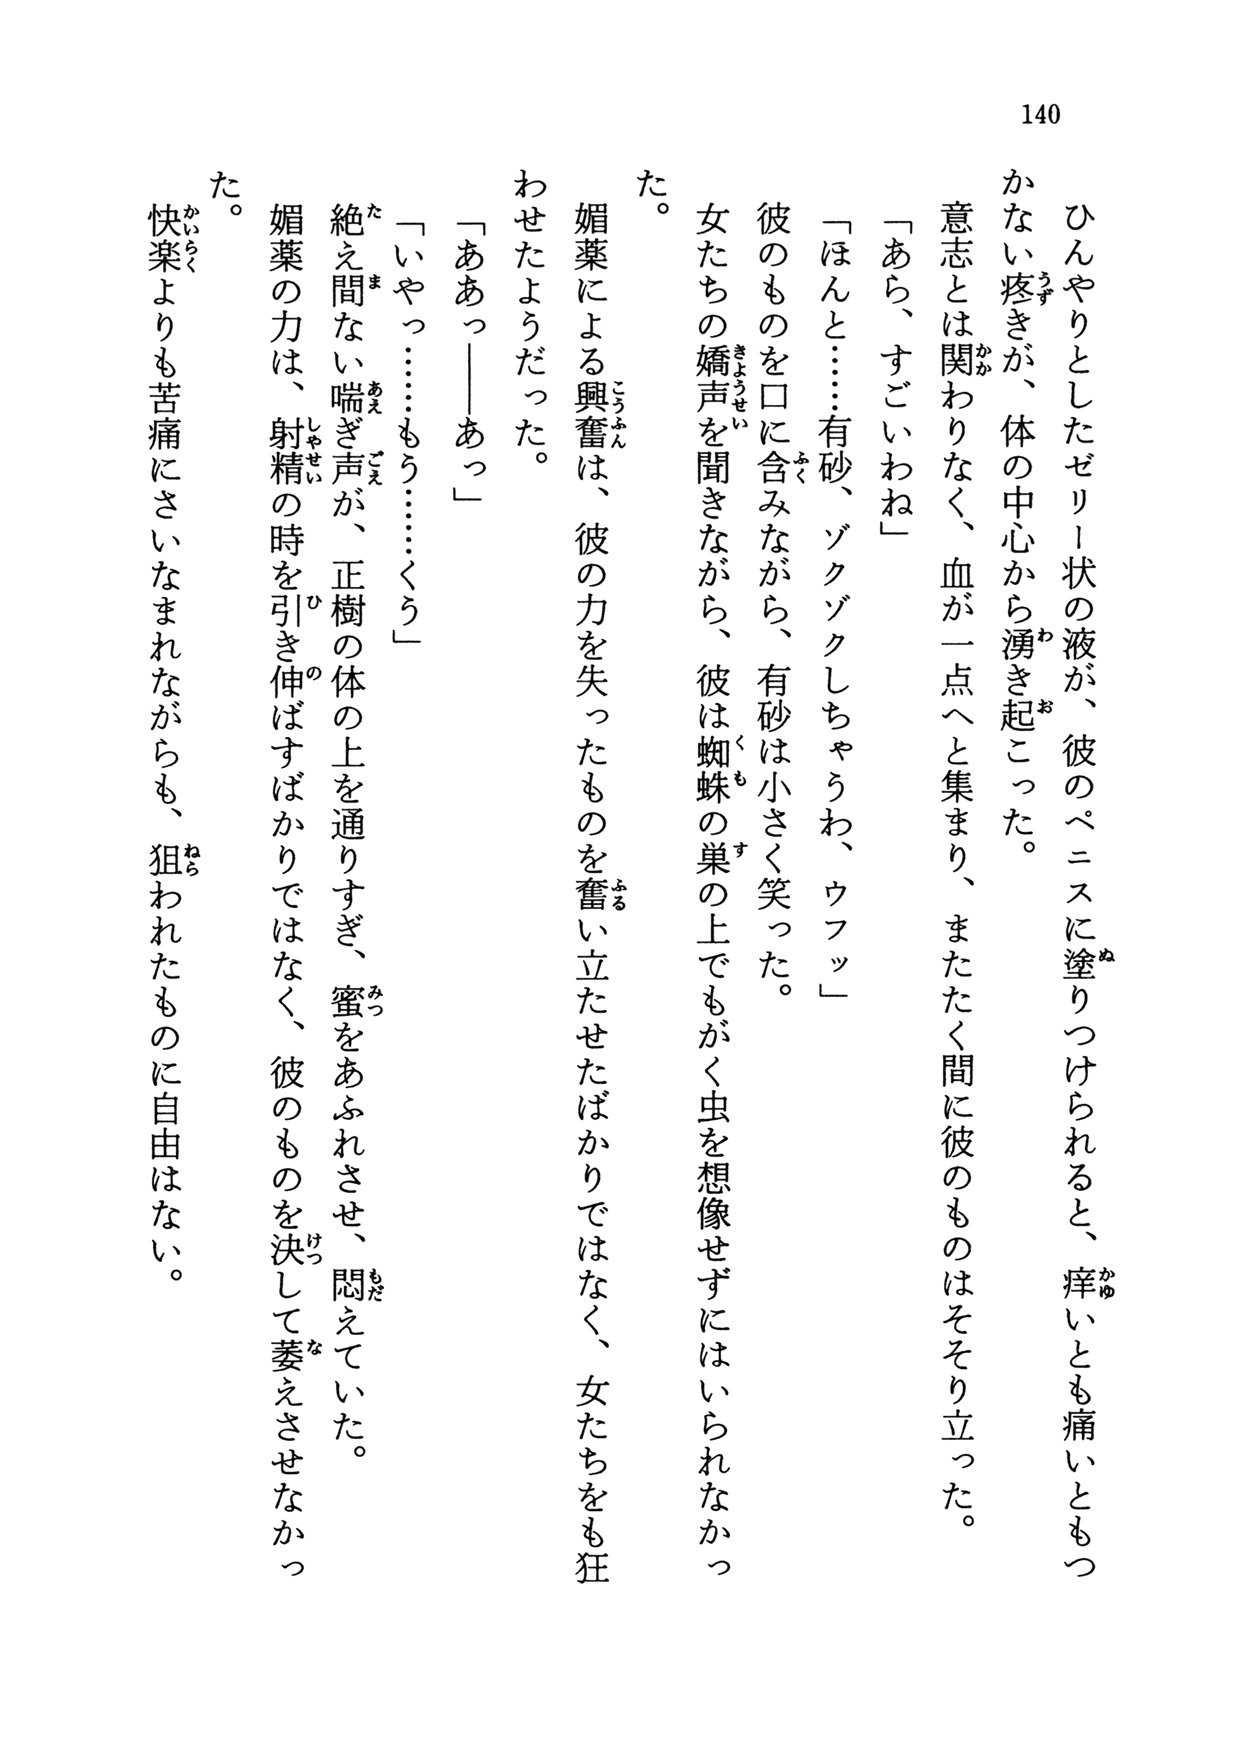 140
ひんやりとしたゼリー状の液が、彼のペニスに塗りつけられると、痒いとも痛いともつ
かない疼きが、体の中心から湧き起こった。
意志とは関わりなく、血が一点へと集まり、またたく間に彼のものはそそり立った。
「あら、すごいわね」
「ほんと……有砂、ゾクゾクしちゃうわ、ウフッ」
彼のものを口に含みながら、有砂は小さく笑った。
女たちの嬌声を聞きながら、彼は蜘蛛の巣の上でもがく虫を想像せずにはいられなかっ
た。
媚薬による興奮は、彼の力を失ったものを奮い立たせたばかりではなく、女たちをも狂
わせたようだった。
「ああっ――あっ」
「いやっ……もう……くう」
絶え間ない喘ぎ声が、正樹の体の上を通りすぎ、蜜をあふれさせ、悶えていた。
媚薬の力は、射精の時を引き伸ばすばかりではなく、彼のものを決して萎えさせなかっ
た。
快楽よりも苦痛にさいなまれながらも、狙われたものに自由はない。